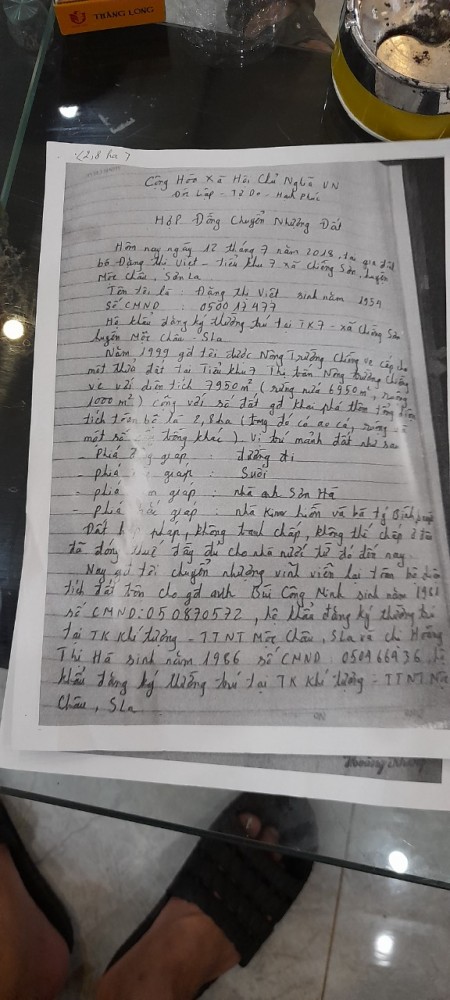 THĂNG LONG
(2,8 ha)
Cộng Hòa Xã Hội Chủ Nghĩa VN
Độc Lập - Tự Do - Hạnh Phúc
Hợp Đồng Chuyển Nhượng Đất
Hôm nay ngày 12 tháng 7 năm 2018, tại gia đình
bà Đặng Thị Việt - Tiểu khu 7 xã Chiềng Sơn, huyện
Mộc Châu, Sơn La
Tên tôi là : Đặng Thị Việt sinh năm 1954
Số CMND : 050017477
Hộ khẩu đăng ký thường trú tại TK7 - xã Chiềng Sơn
huyện Mộc Châu - Sla
Năm 1999 gđ tôi được Nông Trường Chiềng Ve cấp cho
một thửa đất tại Tiểu khu 7 Thị trấn Nông trường Chiềng
ve với diện tích 7950 m² (rừng nứa 6950 m², ruộng
1000 m²) cộng với số đất gđ khai phá thêm tổng diện
tích toàn bộ là 2,8 ha (trong đó có ao cá, ruộng và
một số khác). Vị trí mảnh đất như sau
- Phía giáp : đường đi
- phía giáp : Suối
- phía giáp : nhà anh Sơn Hà
- phía giáp : nhà Kim hiền và bà tỵ Bình
Đất hợp pháp, không tranh chấp, không thế chấp
đã đóng thuế đầy đủ cho nhà nước từ đó đến nay.
Nay gđ tôi chuyển nhượng vĩnh viễn lại toàn bộ diện
tích đất trên cho gđ anh Bùi Công Ninh sinh năm
số CMND: 050870572, hộ khẩu đăng ký thường trú
tại TK Khí tượng - TTNT Mộc Châu, SLa và chị Hoàng
Thị Hà sinh năm 1986 số CMND: 050966936, hộ
khẩu đăng ký thường trú tại TK Khí tượng - TTNT Mộc
Châu, SLa